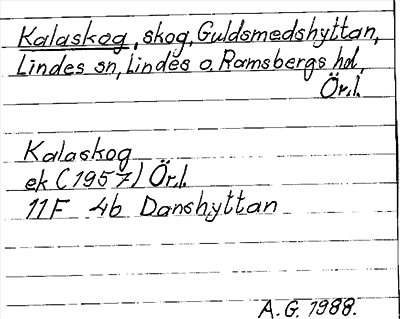 Kalaskog, skog, Guldsmedshyttan,
Lindes sn, Lindes o. Ramsbergs hd,
Ör.l.
Kalaskog
ek (1957) Ör.l.
11F 4b Danshyttan
A.G. 1988.